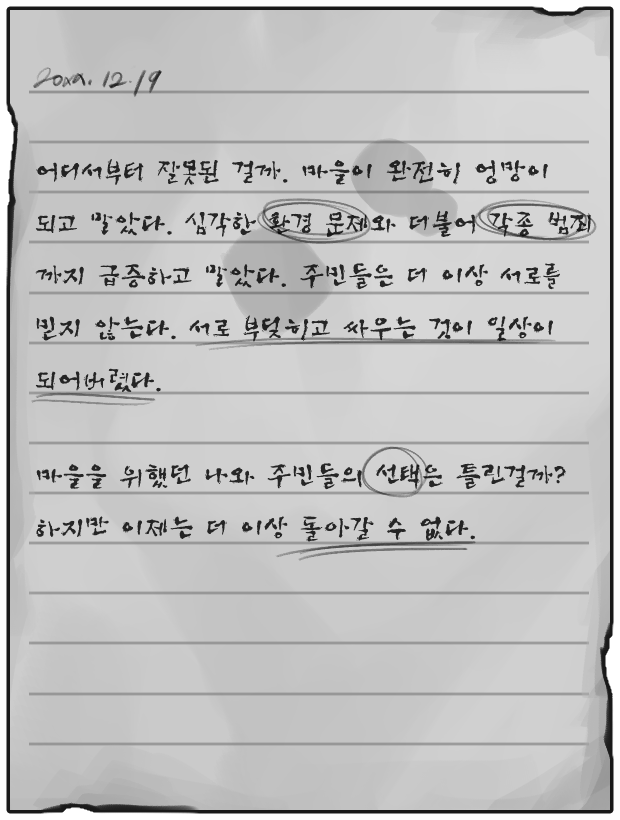 20xx. 12. 19
어디서부터 잘못된 걸까. 마을이 완전히 엉망이
되고 말았다. 심각한 환경 문제와 더불어 각종 범죄
까지 급증하고 말았다. 주민들은 더 이상 서로를
믿지 않는다. 서로 부딪히고 싸우는 것이 일상이
되어버렸다.
마을을 위했던 나와 주민들의 선택은 틀린걸까?
하지만 이제는 더 이상 돌아갈 수 없다.